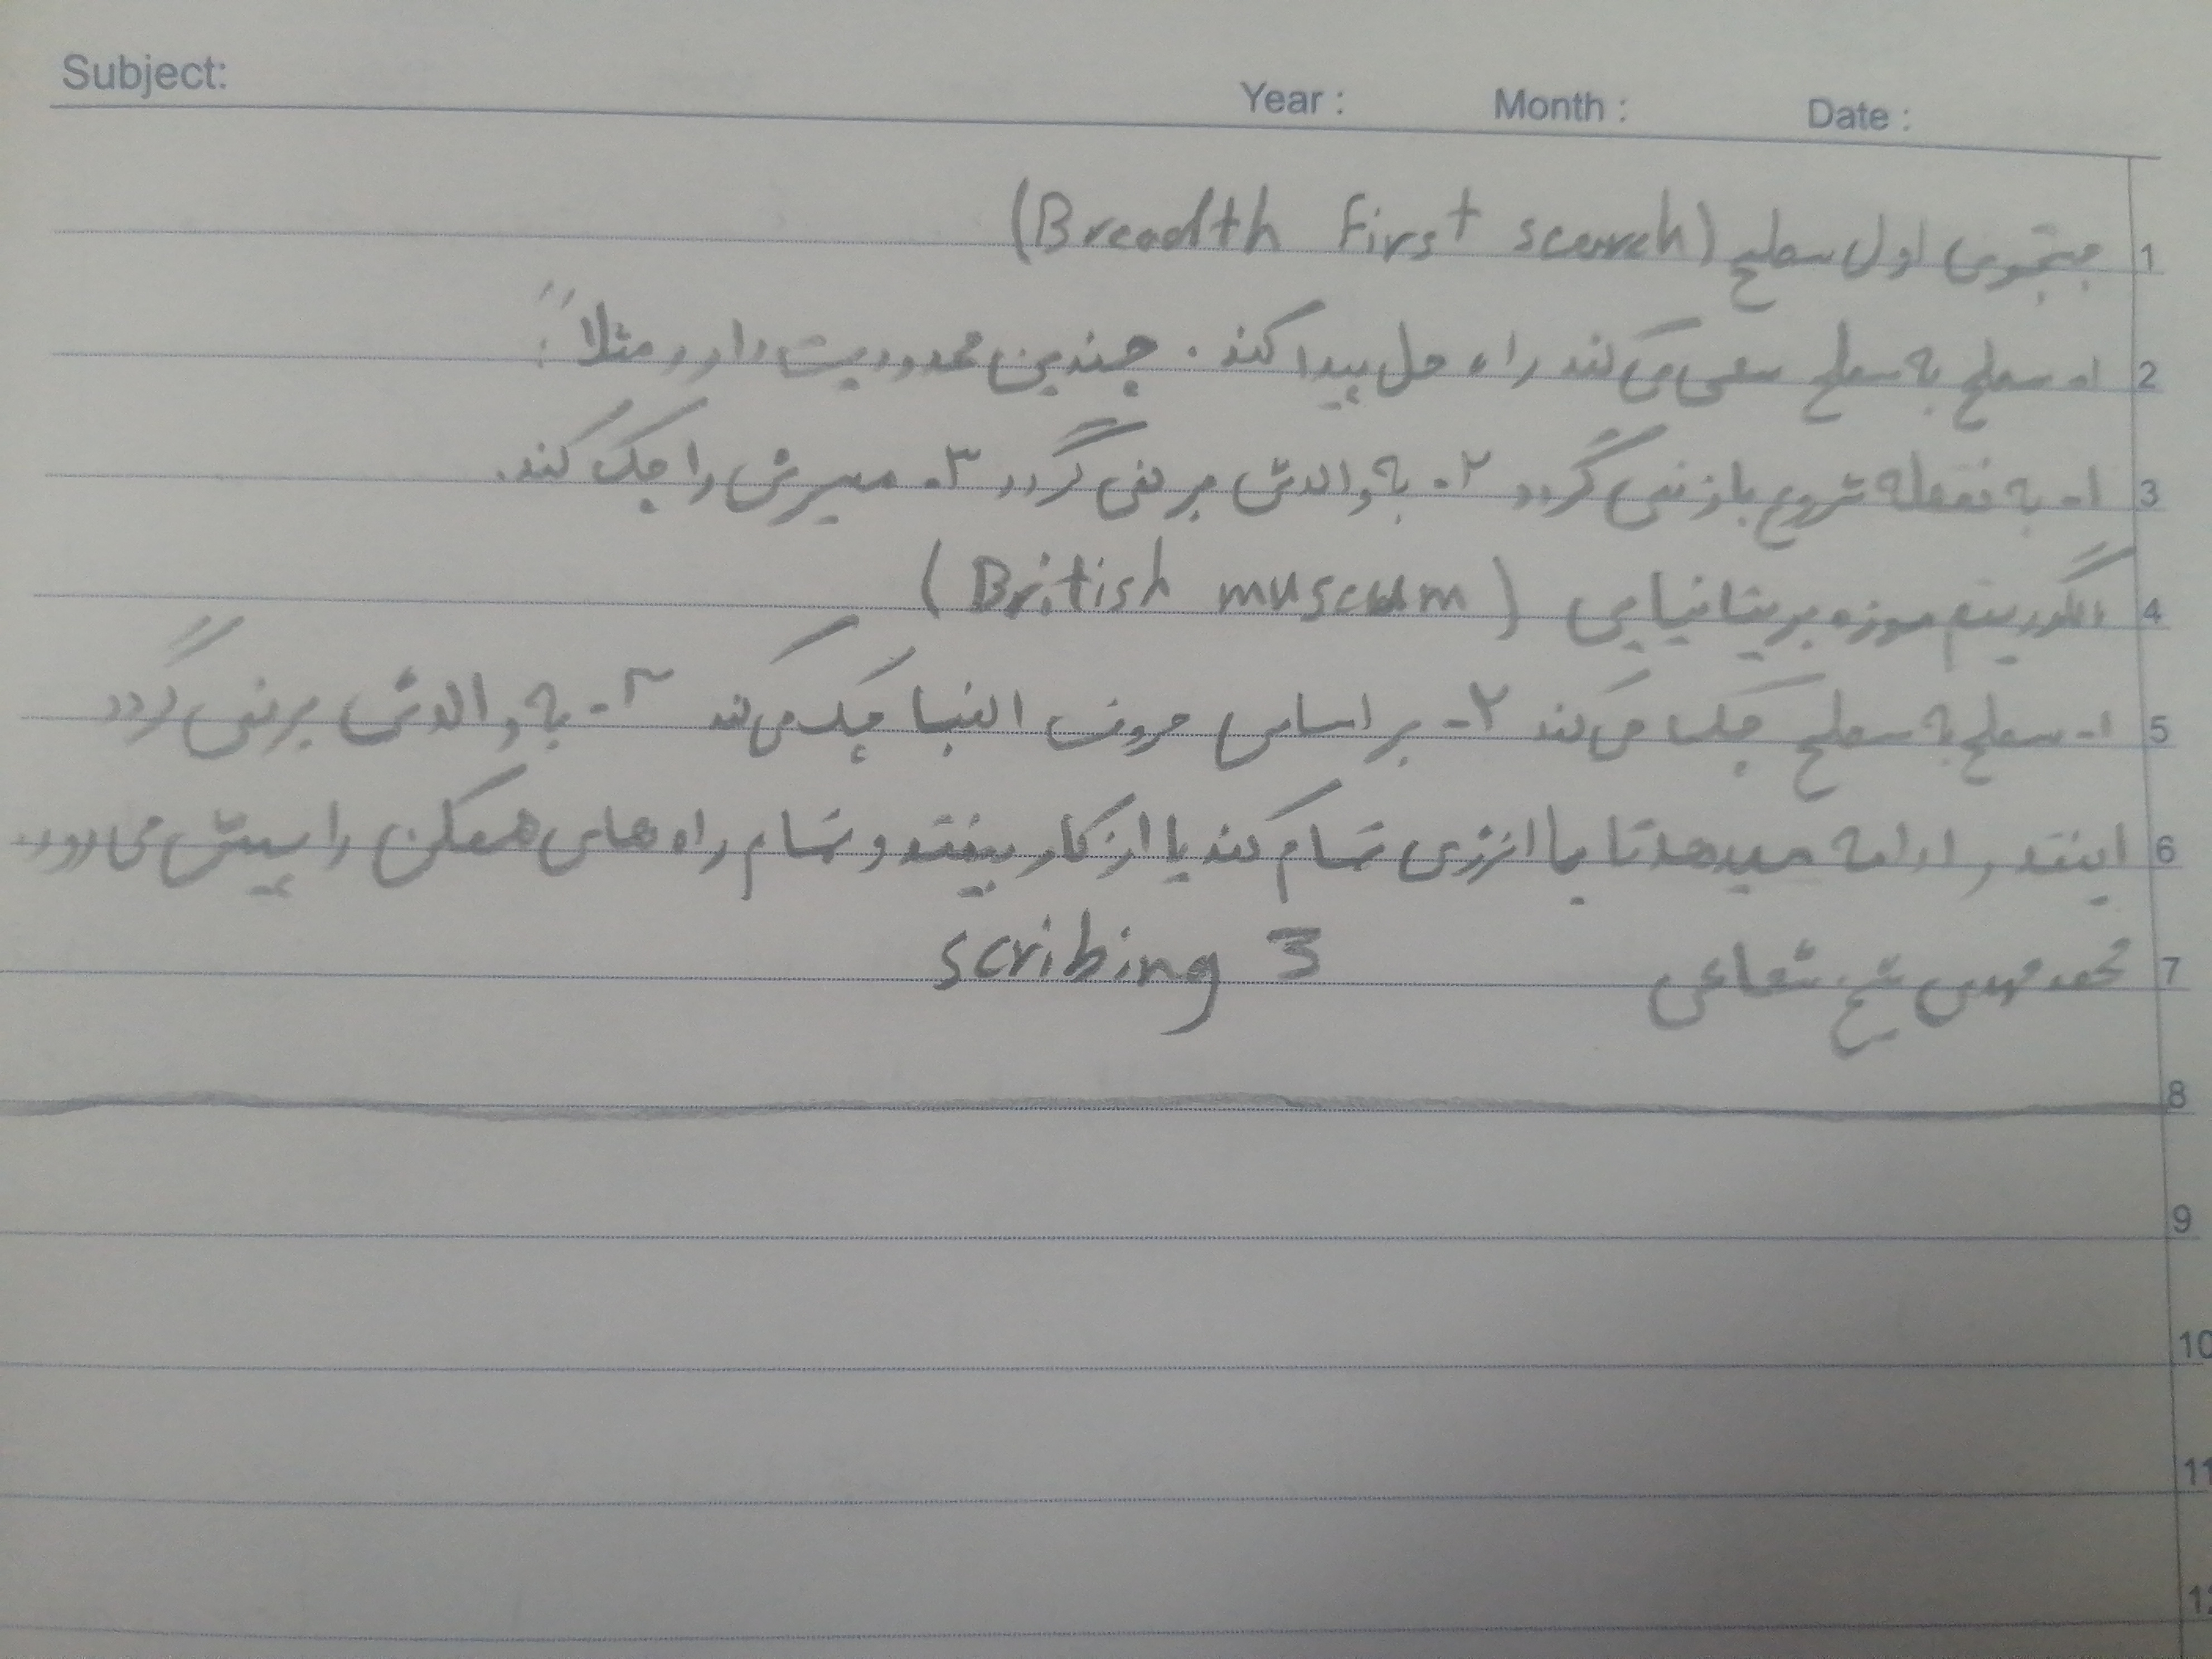 Subject:
Year : Month : Date :
1 جستجوی اول سطح (Breadth First search)
2 ۱- سطح به سطح سعی می‌کند راه حل پیدا کند. چندین محدودیت دارد مثلا":
3 ۱- به نقطه شروع باز نمی گردد ۲- به والدش بر نمی گردد ۳- مسیرش را چک کند.
4 الگوریتم موزه بریتانیایی (British museum)
5 ۱- سطح به سطح چک می‌کند ۲- بر اساس حروف الفبا چک می‌کند ۳- به والدش بر نمی گردد
6 اینقدر ادامه میدهد تا یا انرژی تمام کند یا از کار بیفتد و تمام راه های ممکن را پیش می رود.
7 محمد مهدی شیخ شعاعی scribing 3
8
9
10
11
12